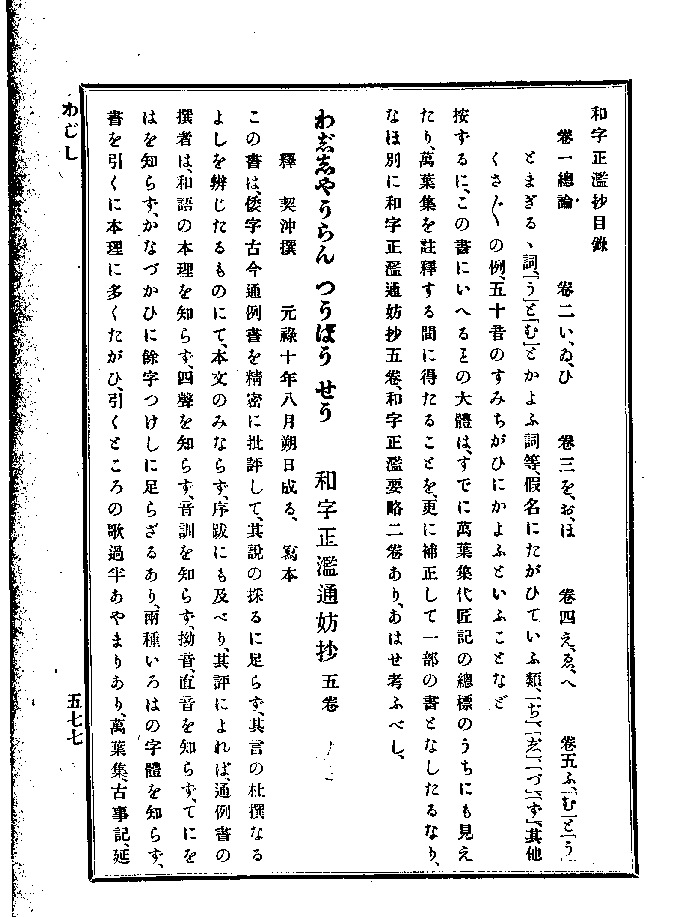 和字正濫抄目錄
卷一總論　卷二い、ゐ、ひ　卷三を、お、ほ　卷四え、ゑ、へ　卷五ふ、「む」と「う」
とまぎるゝ詞、「う」と「む」とかよふ詞等、假名にたがひていふ類、「ぢ」、「じ」、「づ」、「ず」、其他
くさ〴〵の例、五十音のすみちがひにかよふといふことなど
按ずるに、この書にいへるとの大體は、すでに萬葉集代匠記の總標のうちにも見え
たり、萬葉集を註釋する間に得たることを、更に補正して一部の書となしたるなり、
なほ別に和字正濫通妨抄五卷、和字正濫要略二卷あり、あはせ考ふべし、
わじしやうらん つうばう せう　和字正濫通妨抄 五卷
釋　契沖撰　元祿十年八月朔日成る、　寫本
この書は、倭字古今通例書を精密に批評して、其說の採るに足らず、其言の杜撰なる
よしを辨じたるものにて、本文のみならず、序跋にも及べり、其評によれば、通例書の
撰者は、和語の本理を知らず、四聲を知らず、音訓を知らず、拗音、直音を知らず、てにを
はを知らず、かなづかひに餘字つけしに足らざるあり、兩種いろはの字體を知らず、
書を引くに本理に多くたがひ、引くところの歌過半あやまりあり、萬葉集、古事記、延
わじし
五七七